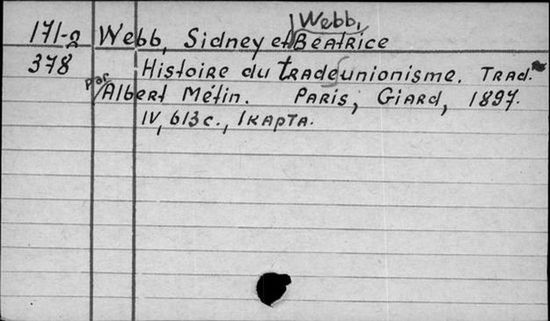 Webb,
171-2 Webb, Sidney et Beatrice
378 Histoire du tradeunionisme. Trad.
par Albert Métin. Paris, Giard, 1897.
IV, 613 c., 1 карта.